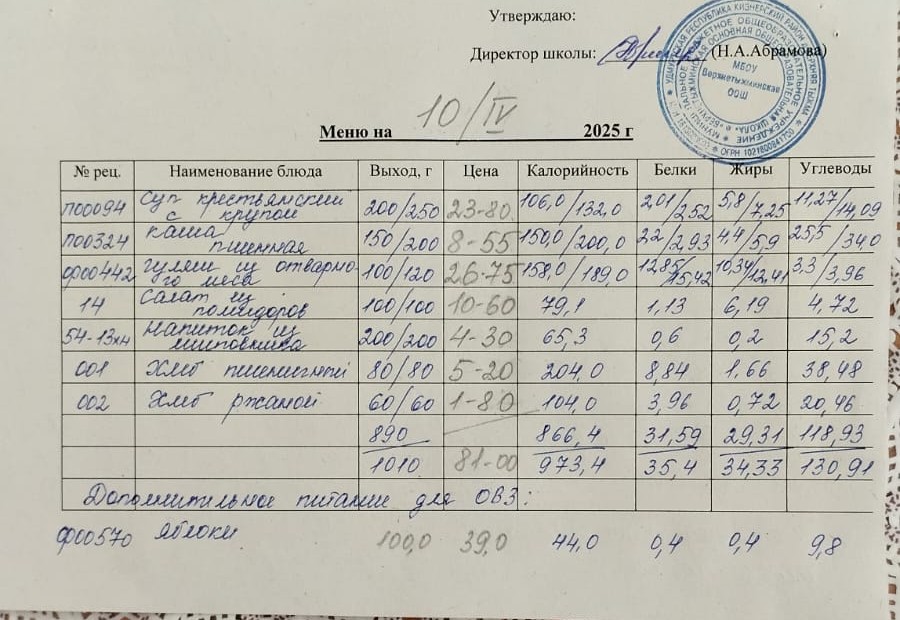 Утверждаю:
Директор школы: (Н.А.Абрамова)
МБОУ
Верхнетыжминская
ООШ
Меню на 10/IV 2025 г
№ рец. Наименование блюда Выход, г Цена Калорийность Белки Жиры Углеводы
П00094 Суп крестьянский с крупой 200/250 23-80 106,0/132,0 2,01/2,52 5,8/7,25 11,27/14,09
П00324 Каша пшенная 150/200 8-55 150,0/200,0 2,2/2,93 4,4/5,9 25,5/34,0
Ф00442 Гуляш из отварного мяса 100/120 26-75 158,0/189,0 12,85/15,42 10,34/12,41 3,3/3,96
14 Салат из помидоров 100/100 10-60 79,1 1,13 6,19 4,72
54-13хн Напиток из шиповника 200/200 4-30 65,3 0,6 0,2 15,2
001 Хлеб пшеничный 80/80 5-20 204,0 8,84 1,66 38,48
002 Хлеб ржаной 60/60 1-80 104,0 3,96 0,72 20,46
890 866,4 31,59 29,31 118,93
1010 81-00 973,4 35,4 34,33 130,91
Дополнительное питание для ОВЗ:
Ф00570 Яблоки 100,0 39,0 44,0 0,4 0,4 9,8